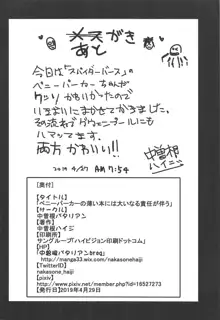 あとがき
今回は「スパイダーバース」の
ペニーパーカーちゃんが
かわいかったので
いきおいにまかせてかきました。
その流れでグウェンプールにも
ハマってます。
両方かわいい!!
2019 4/27 AM 7:54
中曽根
ハイジ
【奥付】
【タイトル】
「ペニーパーカーの薄い本には大いなる責任が伴う」
【サークル】
中曽根バタリアン
【著作】
中曽根ハイジ
【印刷所】
サングループ/ハイビジョン印刷ドットコム
【HP】
「中曽根バタリアンbrog」
http://manga33.wix.com/nakasonehaji
【TwitterID】
nakasone_haiji
【pixiv】
http://www.pixiv.net/member.php?id=16527273
【発行日】2019年4月29日